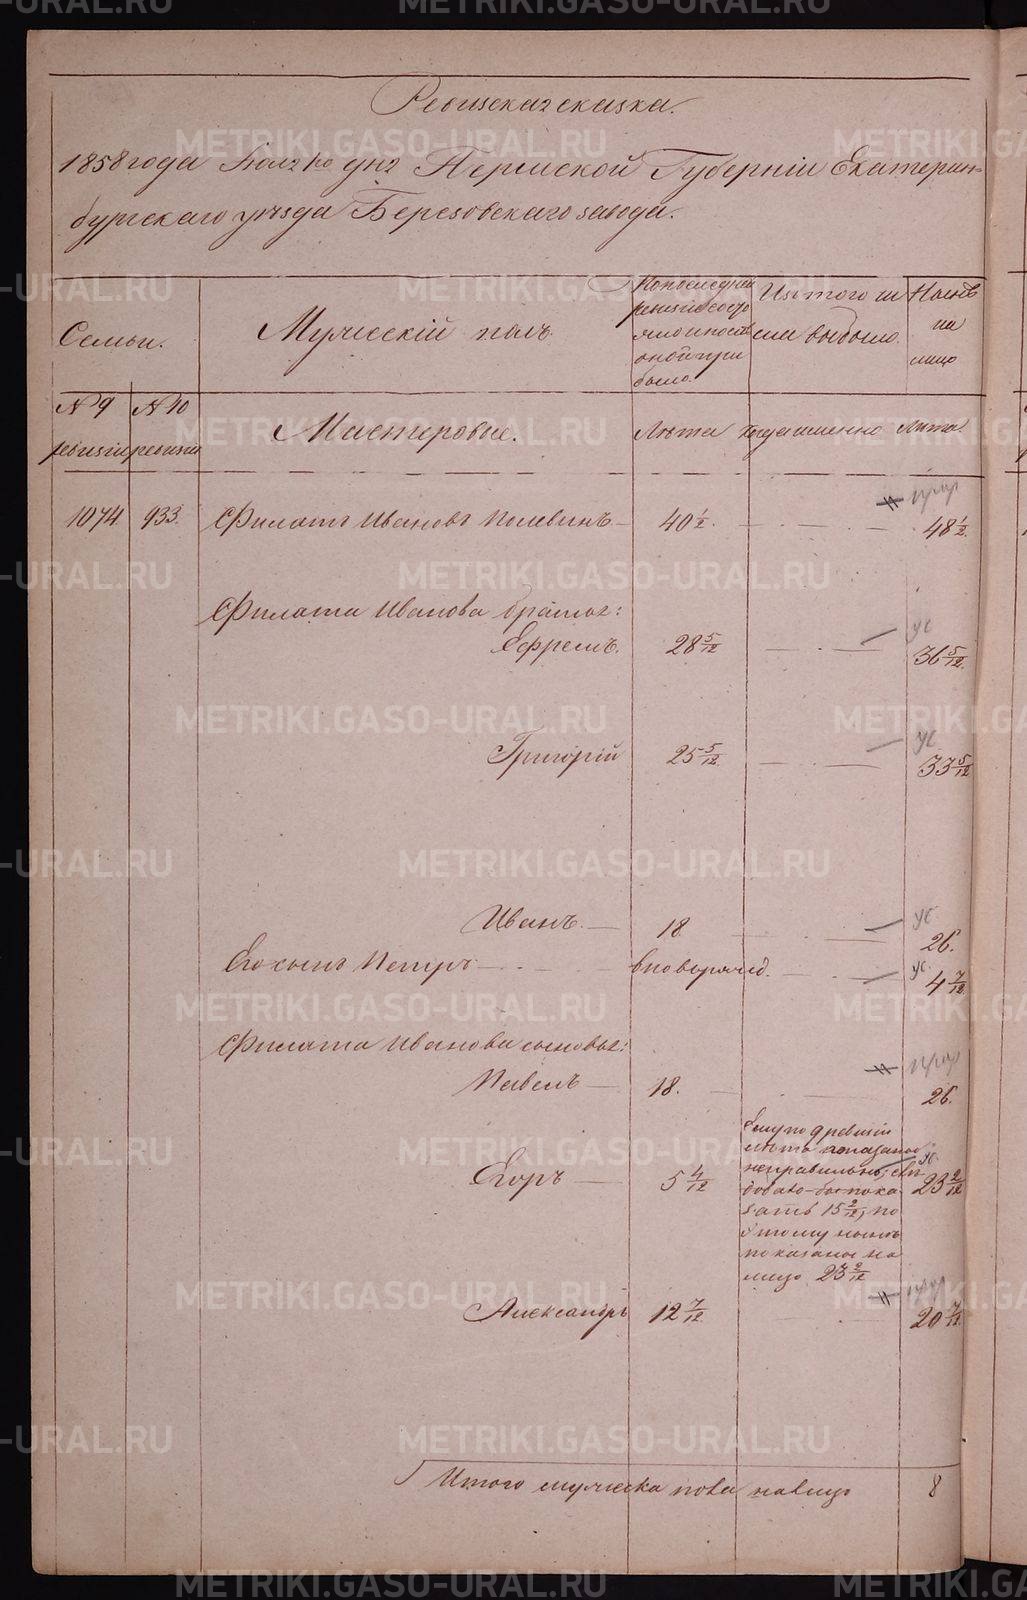 METRIKI.GASO-URAL.RU
Ревизская сказка.
1858 года Июля 10 дня Пермской Губернiи Екатерин-
бургскаго уѣзда Березовскаго завода.
Семьи.
Мужескiй полъ.
По последней
ревизiи состо
яло и после
оной при
было.
Изъ того чи
сла выбыло.
Нынѣ
на
лицо
№ 9
ревизiи
№ 10
ревизiи
Мастеровые.
Лѣта
когда именно
Лѣта
1074
933.
Филатъ Ивановъ Полевинъ
40 1/2
48 1/2
Филата Иванова братья:
Ефремъ.
28 5/12
ус
36 5/12
Григорiй
25 5/12
ус
33 5/12
Иванъ.
18
ус
26.
Его сынъ Петръ
вновь рожд.
ус.
4 7/12
Филата Иванова сыновья:
Павелъ
18.
26.
Егоръ
5 4/12
Ему по 9 ревизiи
лѣта показаны
неправильно, слѣ
довало бы пока
зать 15 2/12, по
этому нынѣ
показаны на
лицо 23 2/12
ус.
23 2/12
Александръ
12 7/12
20 7/12
Итого мужеска пола на лицо
8